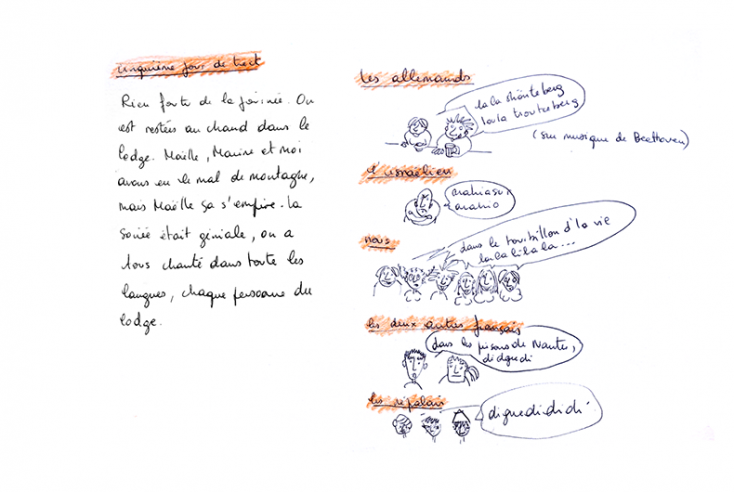 cinquième jour de treck
Rien foute de la journée. On
est restées au chaud dans le
lodge. Maëlle, Marine et moi
avons eu le mal de montagne,
mais Maëlle ça s'empire. La
soirée était géniale, on a
tous chanté dans toute les
langues, chaque personne du
lodge.
Les allemands
la la shönteberg
la la trouteberg
(sur musique de Beethoven)
l'israélien
nous
dans le tourbillon d'la vie
la la li la la ...
les deux autres français
dans les prisons de Nantes,
didgudi
les népalais
diguedididi